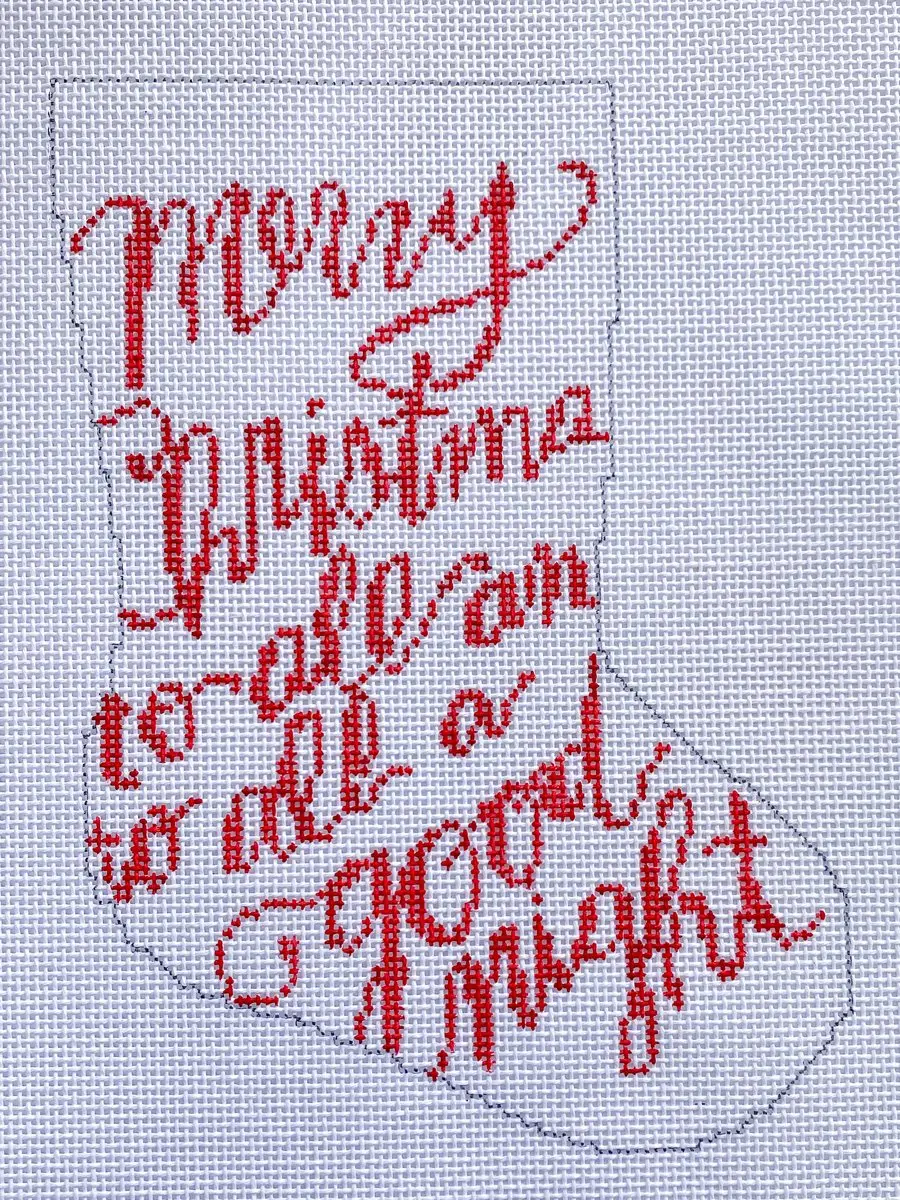 Merry
Christma
to all an
to all a
good
night